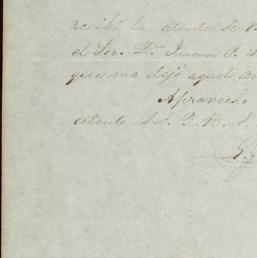 recibí la atenta de V
el Sor. Dn Juan P.
que me dejó aquel
Aprovecho
atento S.S. Q.B.S.